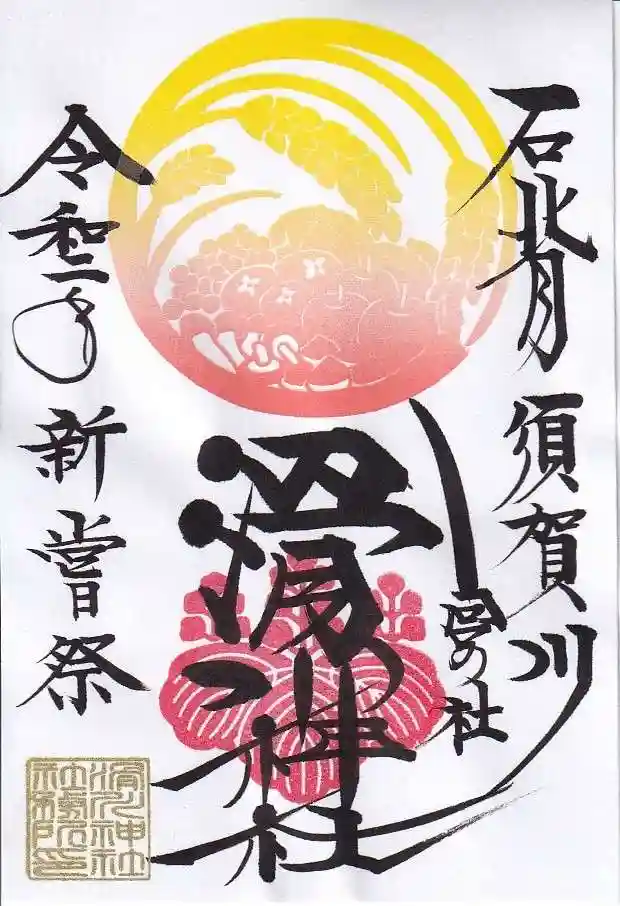 石背 須賀川
宮の社
滑川神社
令和二年 新嘗祭
滑川神社社務所印